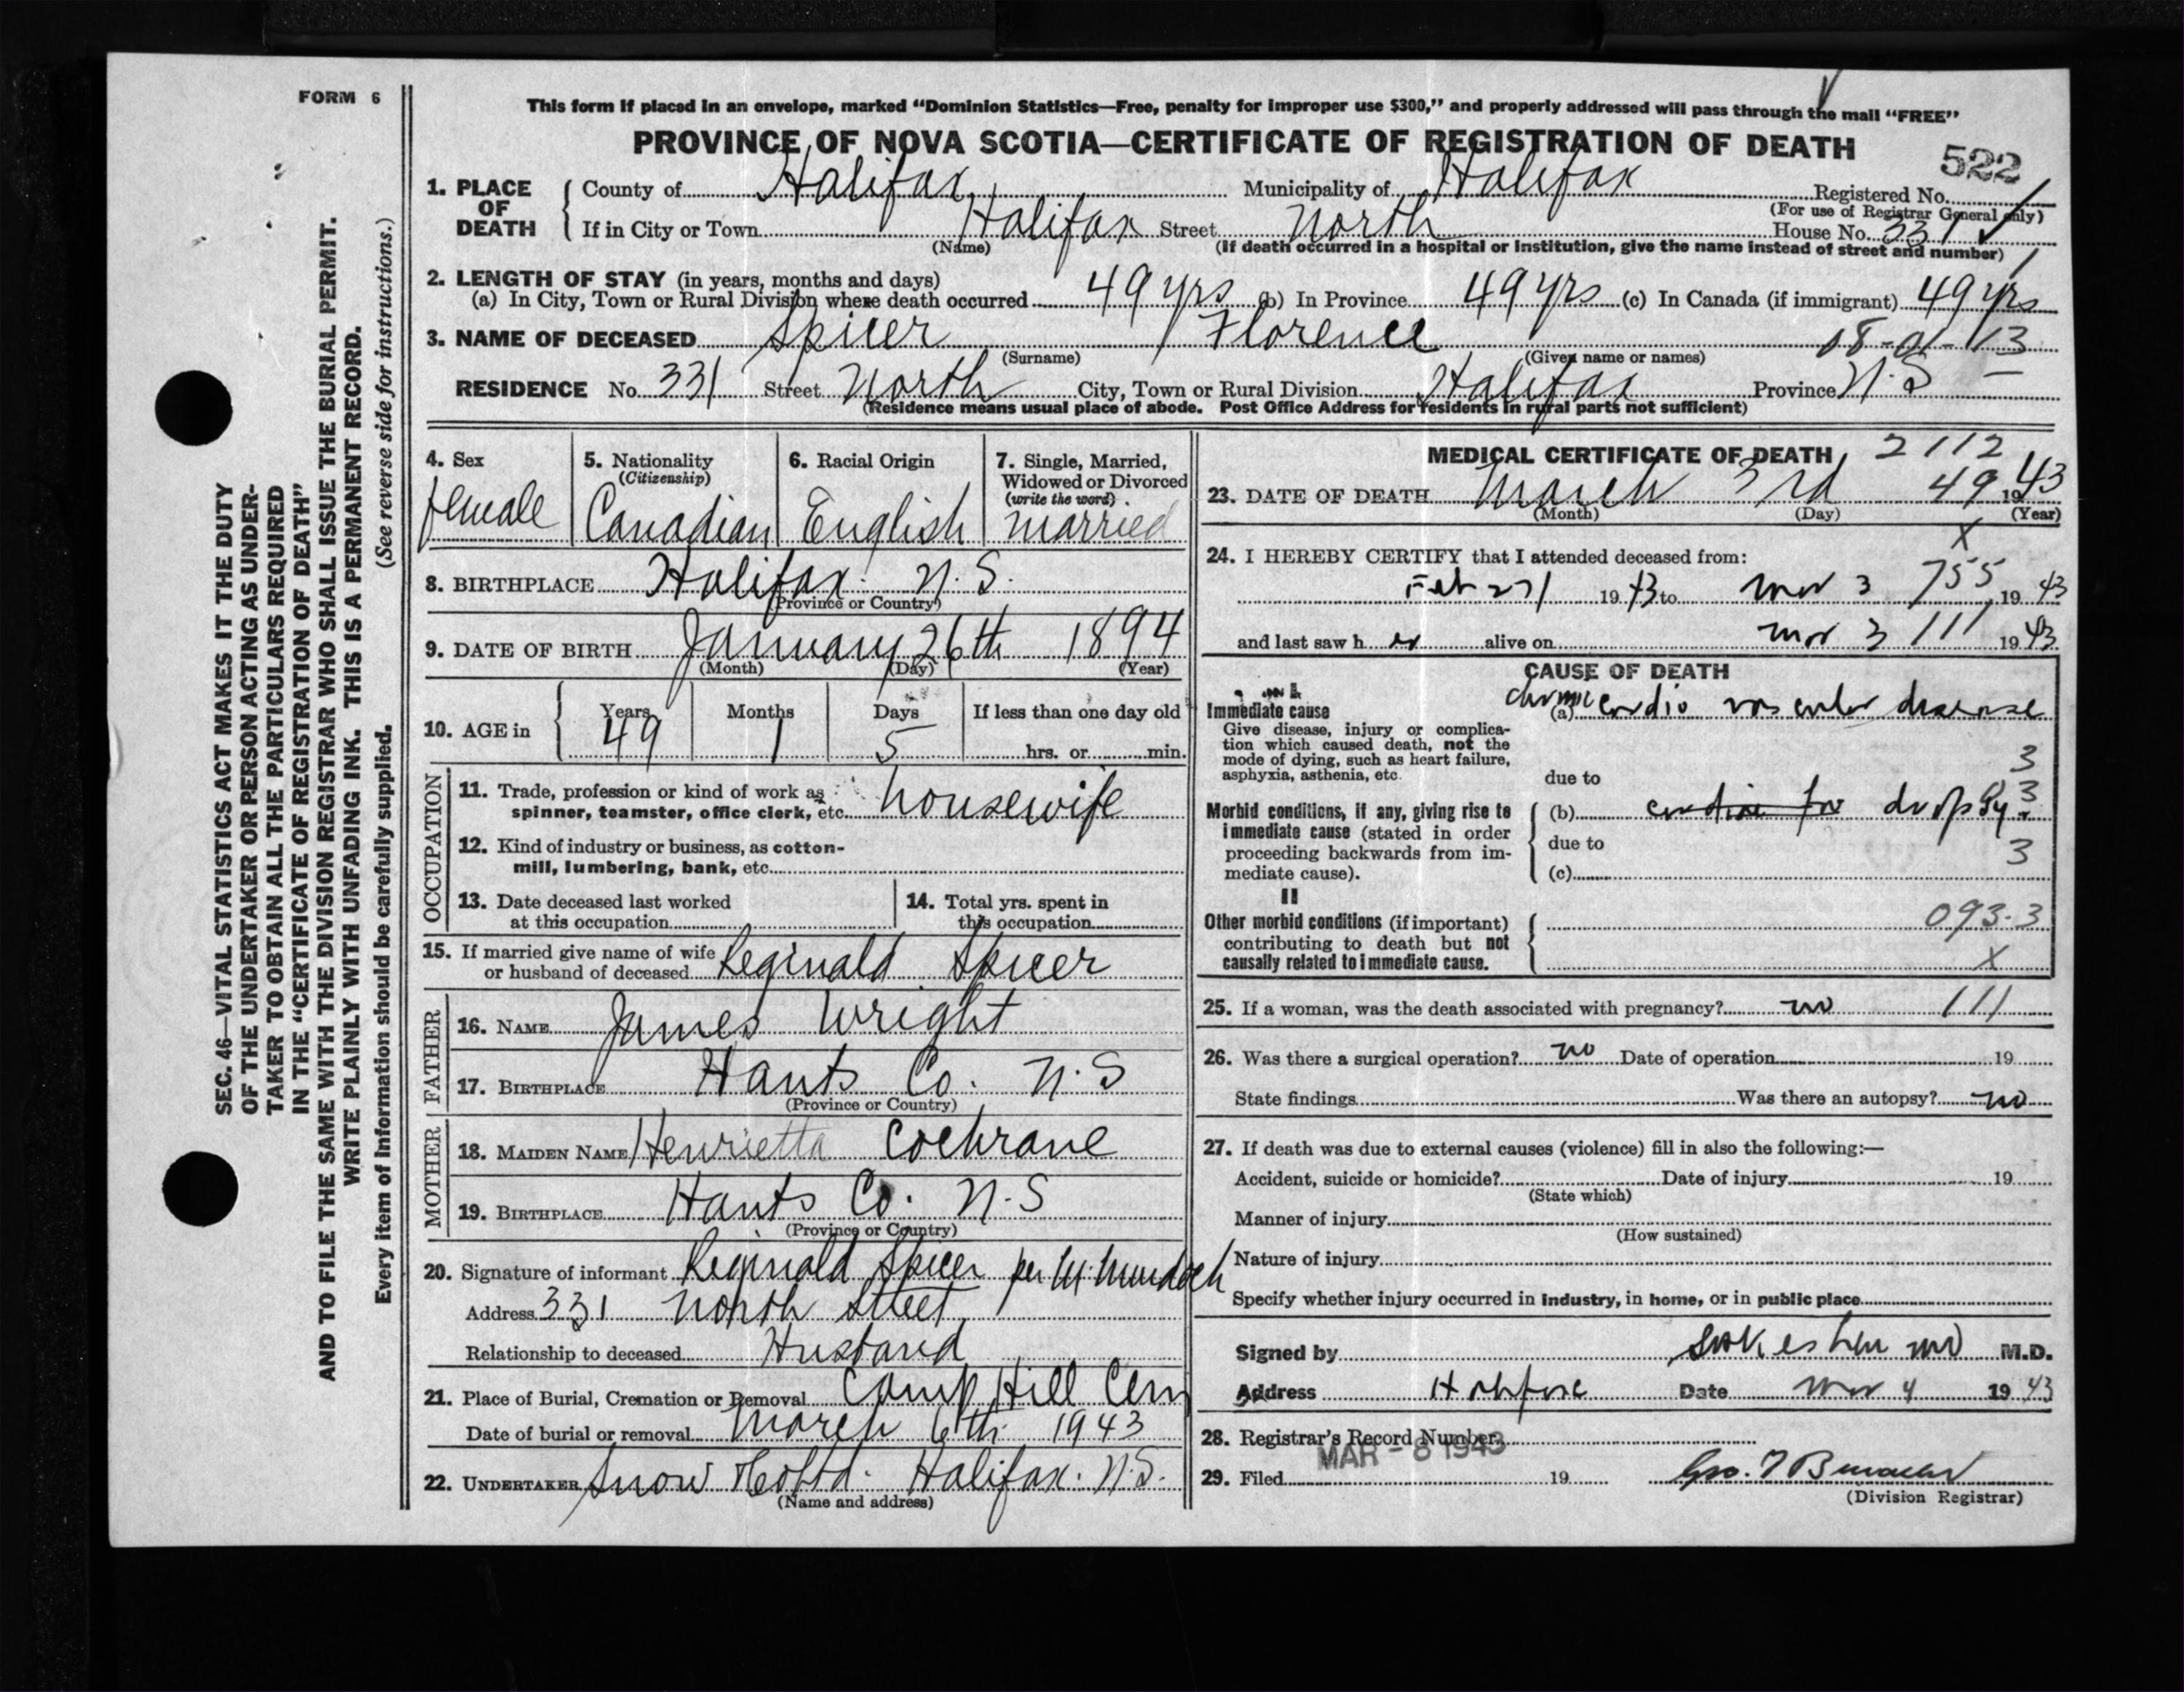 FORM 6
This form if placed in an envelope, marked “Dominion Statistics—Free, penalty for improper use $300,” and properly addressed will pass through the mail “FREE”
PROVINCE OF NOVA SCOTIA—CERTIFICATE OF REGISTRATION OF DEATH
522
1. PLACE OF DEATH County of Halifax Municipality of Halifax Registered No.
(For use of Registrar General only)
If in City or Town Halifax Street North House No. 331
(Name) (If death occurred in a hospital or institution, give the name instead of street and number)
2. LENGTH OF STAY (in years, months and days)
(a) In City, Town or Rural Division where death occurred 49 yrs (b) In Province 49 yrs (c) In Canada (if immigrant) 49 yrs
3. NAME OF DECEASED Spicer Florence 08-01-13
(Surname) (Given name or names)
RESIDENCE No. 331 Street North City, Town or Rural Division Halifax Province N.S
(Residence means usual place of abode. Post Office Address for residents in rural parts not sufficient)
4. Sex female
5. Nationality (Citizenship) Canadian
6. Racial Origin English
7. Single, Married, Widowed or Divorced (write the word) married
8. BIRTHPLACE Halifax. N.S.
(Province or Country)
9. DATE OF BIRTH January 26th 1894
(Month) (Day) (Year)
10. AGE in Years 49 Months 1 Days 5 If less than one day old
hrs. or min.
OCCUPATION
11. Trade, profession or kind of work as spinner, teamster, office clerk, etc. housewife
12. Kind of industry or business, as cotton-mill, lumbering, bank, etc.
13. Date deceased last worked at this occupation
14. Total yrs. spent in this occupation
15. If married give name of wife or husband of deceased Reginald Spicer
FATHER
16. NAME James Wright
17. BIRTHPLACE Hants Co. N.S
(Province or Country)
MOTHER
18. MAIDEN NAME Henrietta Cochrane
19. BIRTHPLACE Hants Co. N.S
(Province or Country)
20. Signature of informant Reginald Spicer per M. Murdoch
Address 331 North Street
Relationship to deceased Husband
21. Place of Burial, Cremation or Removal Camp Hill Cem
Date of burial or removal March 6th 1943
22. UNDERTAKER Snow & Co Ltd. Halifax. N.S.
(Name and address)
MEDICAL CERTIFICATE OF DEATH 2112
23. DATE OF DEATH March 3rd 49 1943
(Month) (Day) (Year)
X
24. I HEREBY CERTIFY that I attended deceased from:
Feb 27 1943 to Mar 3 755, 1943
and last saw her alive on Mar 3 111 1943
CAUSE OF DEATH
I
Immediate cause (a) chronic cardio vascular disease
Give disease, injury or complication which caused death, not the mode of dying, such as heart failure, asphyxia, asthenia, etc.
3
due to
Morbid conditions, if any, giving rise to immediate cause (stated in order proceeding backwards from immediate cause).
(b) dropsy 3
due to 3
(c)
II
Other morbid conditions (if important) contributing to death but not causally related to immediate cause.
093-3
X
25. If a woman, was the death associated with pregnancy? no 111
26. Was there a surgical operation? no Date of operation 19
State findings Was there an autopsy? no
27. If death was due to external causes (violence) fill in also the following:—
Accident, suicide or homicide? Date of injury 19
(State which)
Manner of injury
(How sustained)
Nature of injury
Specify whether injury occurred in industry, in home, or in public place
Signed by M.D.
Address Halifax Date Mar 4 1943
28. Registrar's Record Number
MAR - 8 1943
29. Filed 19
(Division Registrar)
SEC. 46—VITAL STATISTICS ACT MAKES IT THE DUTY
OF THE UNDERTAKER OR PERSON ACTING AS UNDER-
TAKER TO OBTAIN ALL THE PARTICULARS REQUIRED
IN THE “CERTIFICATE OF REGISTRATION OF DEATH”
AND TO FILE THE SAME WITH THE DIVISION REGISTRAR WHO SHALL ISSUE THE BURIAL PERMIT.
WRITE PLAINLY WITH UNFADING INK. THIS IS A PERMANENT RECORD.
Every item of information should be carefully supplied. (See reverse side for instructions.)